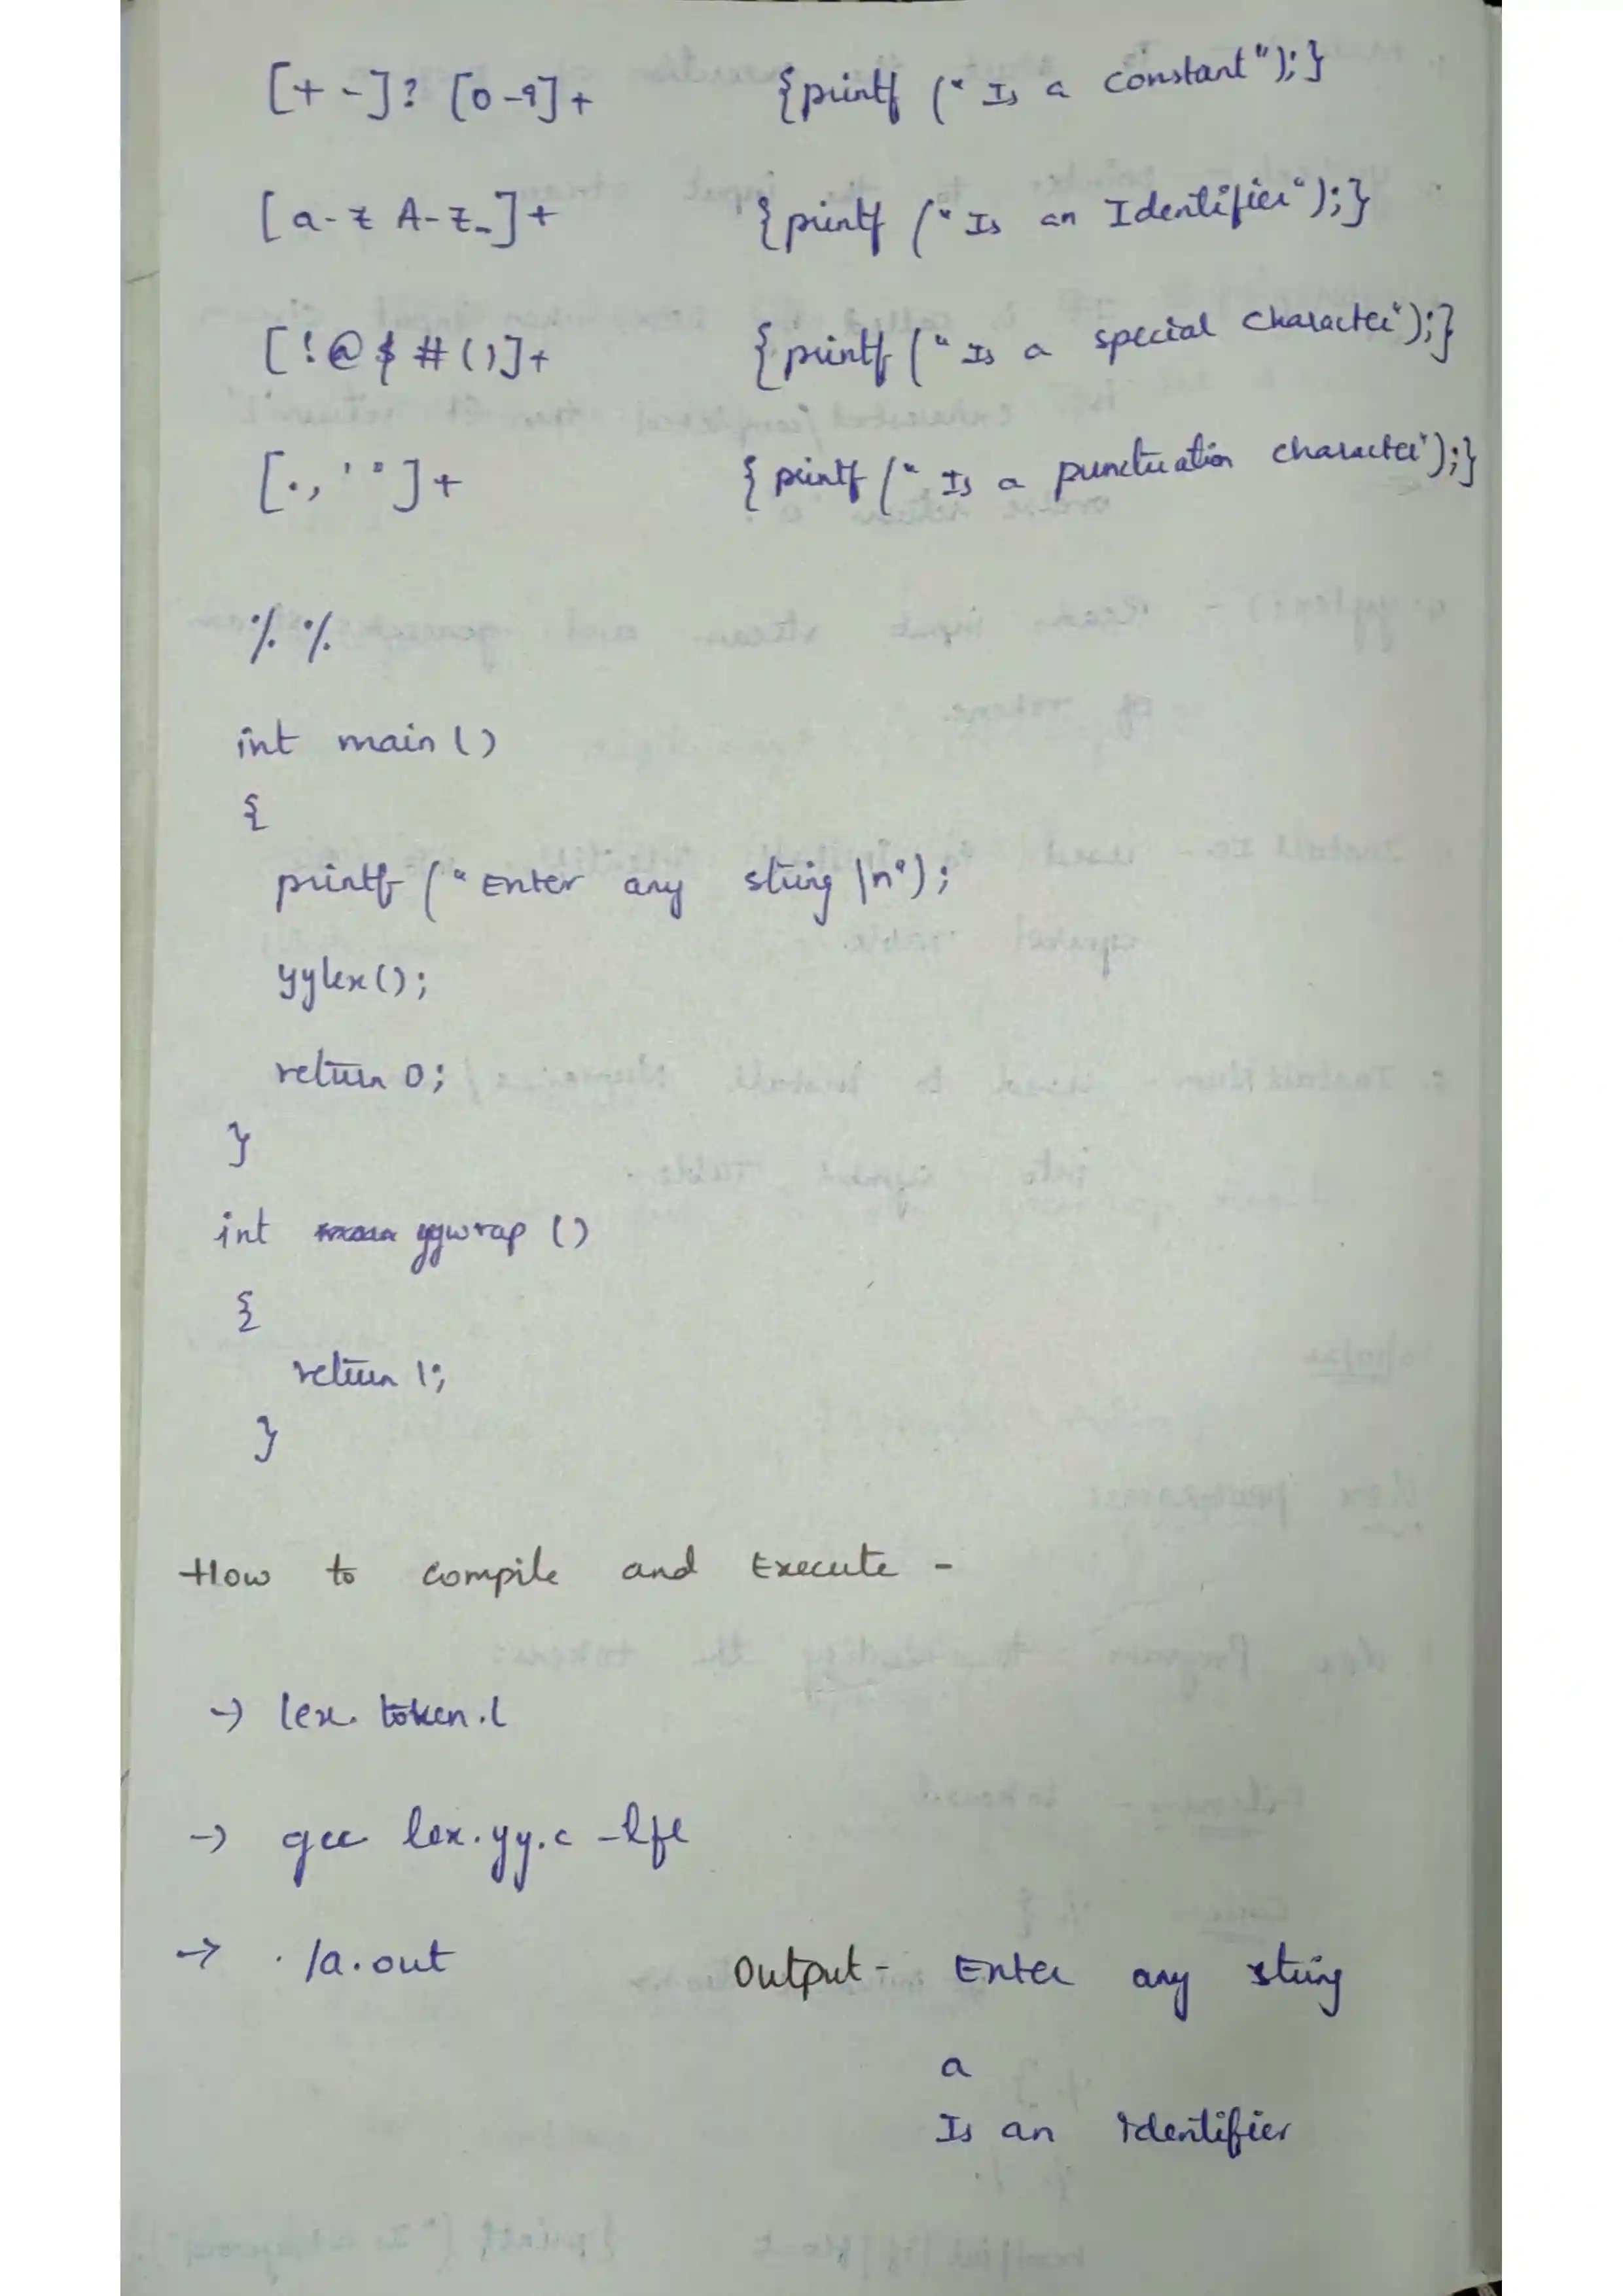 [+-]? [0-9]+ {printf (" Is a constant");}
[a-z A-Z_]+ {printf ("Is an Identifier");}
[!@$#()]+ {printf ("Is a special character");}
[.,'"]+ {printf ("Is a punctuation character");}
%%
int main()
{
printf ("Enter any string \n");
yylex();
return 0;
}
int yywrap ()
{
return 1;
}
How to compile and Execute -
→ lex token.l
→ gcc lex.yy.c -lfl
→ ./a.out Output - Enter any string
a
Is an identifier